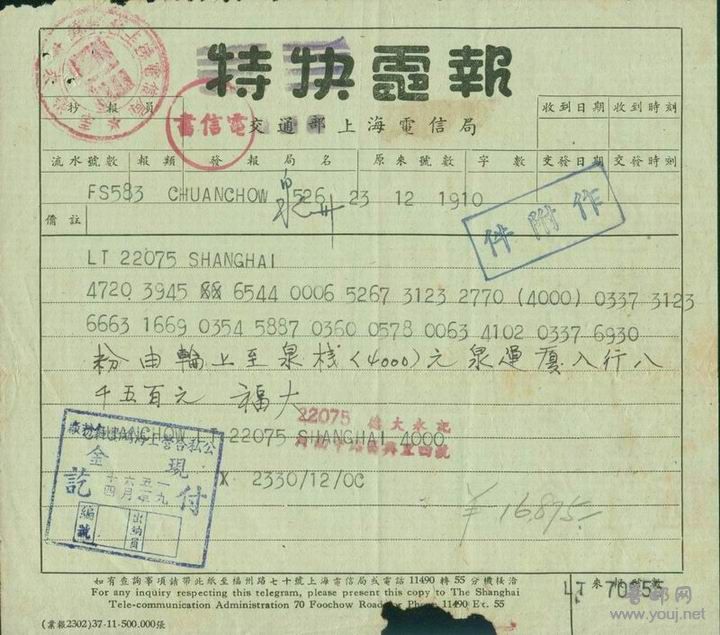 特快電報
抄報員
交通部上海電信局
收到日期 收到時刻
電信書
流水號數 報類 發報局名 原來號數 字數 交發日期 交發時刻
FS583 CHUANCHOW 526 23 12 1910
泉州
備註
作附件
LT 22075 SHANGHAI
4720 3945 6544 0006 5267 3123 2770 (4000) 0337 3123
6663 1669 0354 5887 0360 0578 0063 4102 0337 6930
粉由輪上至泉棧(4000)元泉運廈入行八
千五百元 福大
22075
CHUANCHOW LT 22075 SHANGHAI 4000
公私合營上海
現金
付訖
編號
出納員
X 2330/12/0C
¥16875
如有查詢事項請帶此紙至福州路七十號上海電信局或電話11490轉55分機接洽
For any inquiry respecting this telegram, please present this copy to The Shanghai
Tele-communication Administration 70 Foochow Road or Phone 11490 Ex. 55
LT 70555
(業報2302)37-11-500.000張
www.youj.net